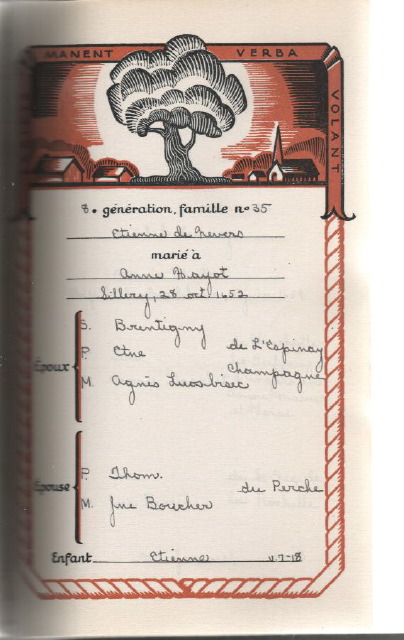 MANENT VERBA VOLANT
8e génération, famille no 35
Etienne de Nevers
marié à
Anne Hayot
Sillery, 28 oct. 1652
Époux
S. Brentigny
P. Etne de L'Espinay
Champagne
M. Agnès
Épouse
P. Thom. du Perche
M. Jne Boucher
Enfant Etienne V-7-18